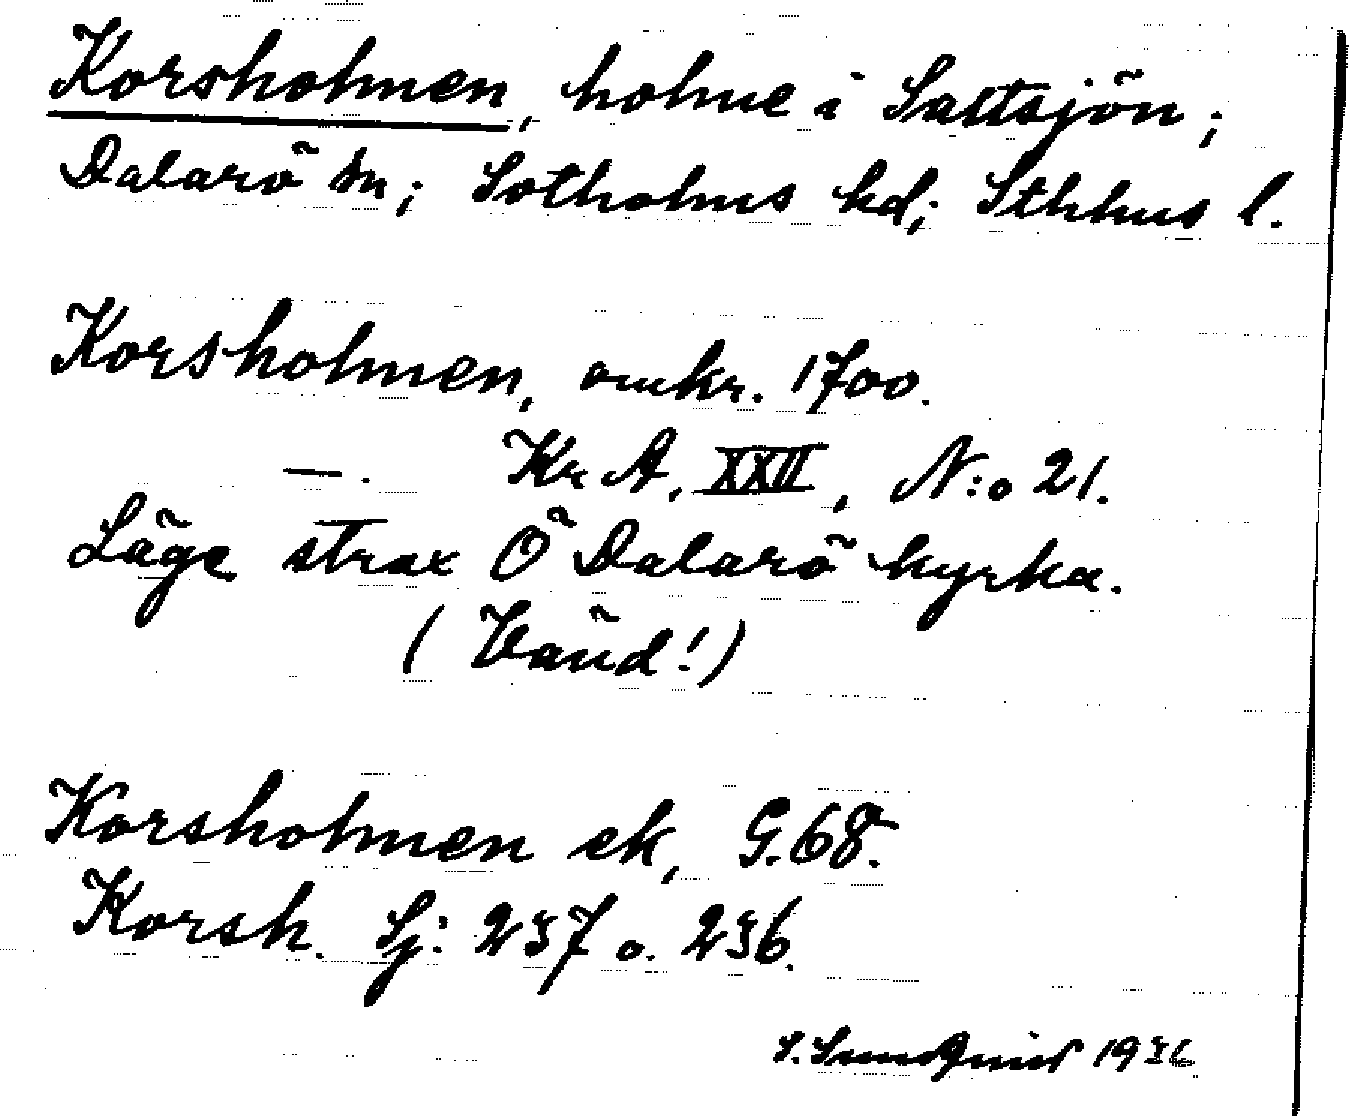 Korsholmen, holme i Saltsjön;
Dalarö sn; Sotholms hd; Sthlms l.
Korsholmen, omkr. 1700.
—. Kr A, XXII, N:o 21.
Läge strax Ö Dalarö kyrka.
(Vänd!)
Korsholmen ek, G.68.
Korsh. Sj: 237 o. 236.
S. Sundqvist 1936